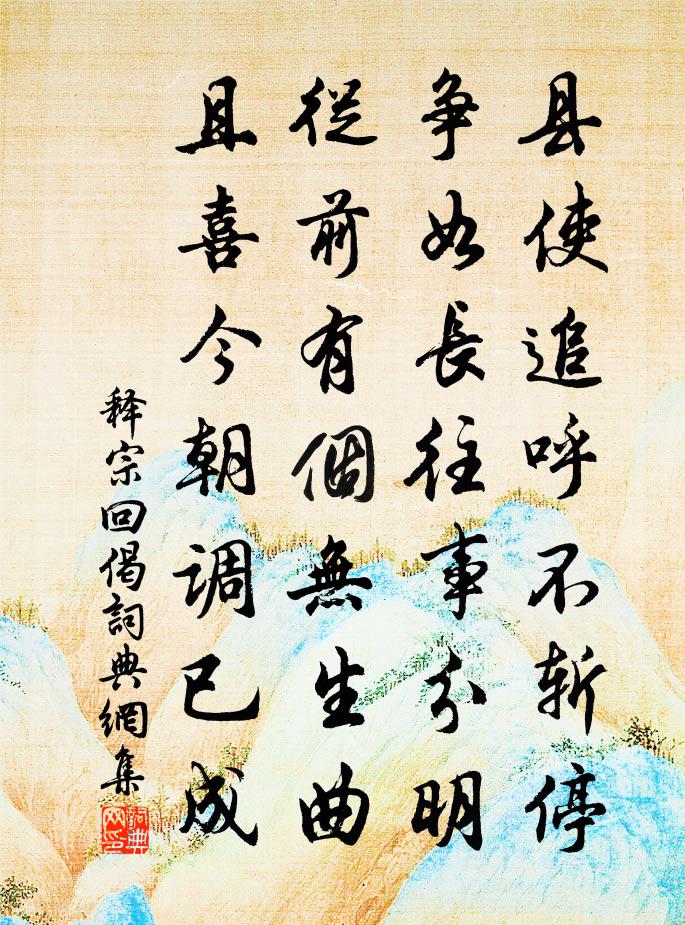 县使追呼不斩停
争如長往事分明
從前有個無生曲
且喜今朝调已成
释宗回偈詞典網集